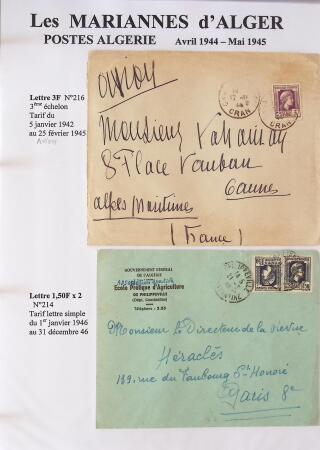 Les MARIANNES d'ALGER
POSTES ALGERIE Avril 1944 – Mai 1945
Lettre 3F N°216
3ème échelon
Tarif du
5 janvier 1942
au 25 février 1945
avion
Monsieur
8 Place Vauban
Cannes
Alpes Maritimes
(France)
ORAN
Lettre 1,50F x 2
N°214
Tarif lettre simple
du 1er janvier 1946
au 31 décembre 46
GOUVERNEMENT GENERAL
DE L'ALGERIE
Ecole Pratique d'Agriculture
DE PHILIPPEVILLE
(Dépt. Constantine)
Téléphone : 2.53
PHILIPPEVILLE
Monsieur le Directeur de la
Héraclès
139 rue du Faubourg St Honoré
Paris 8e